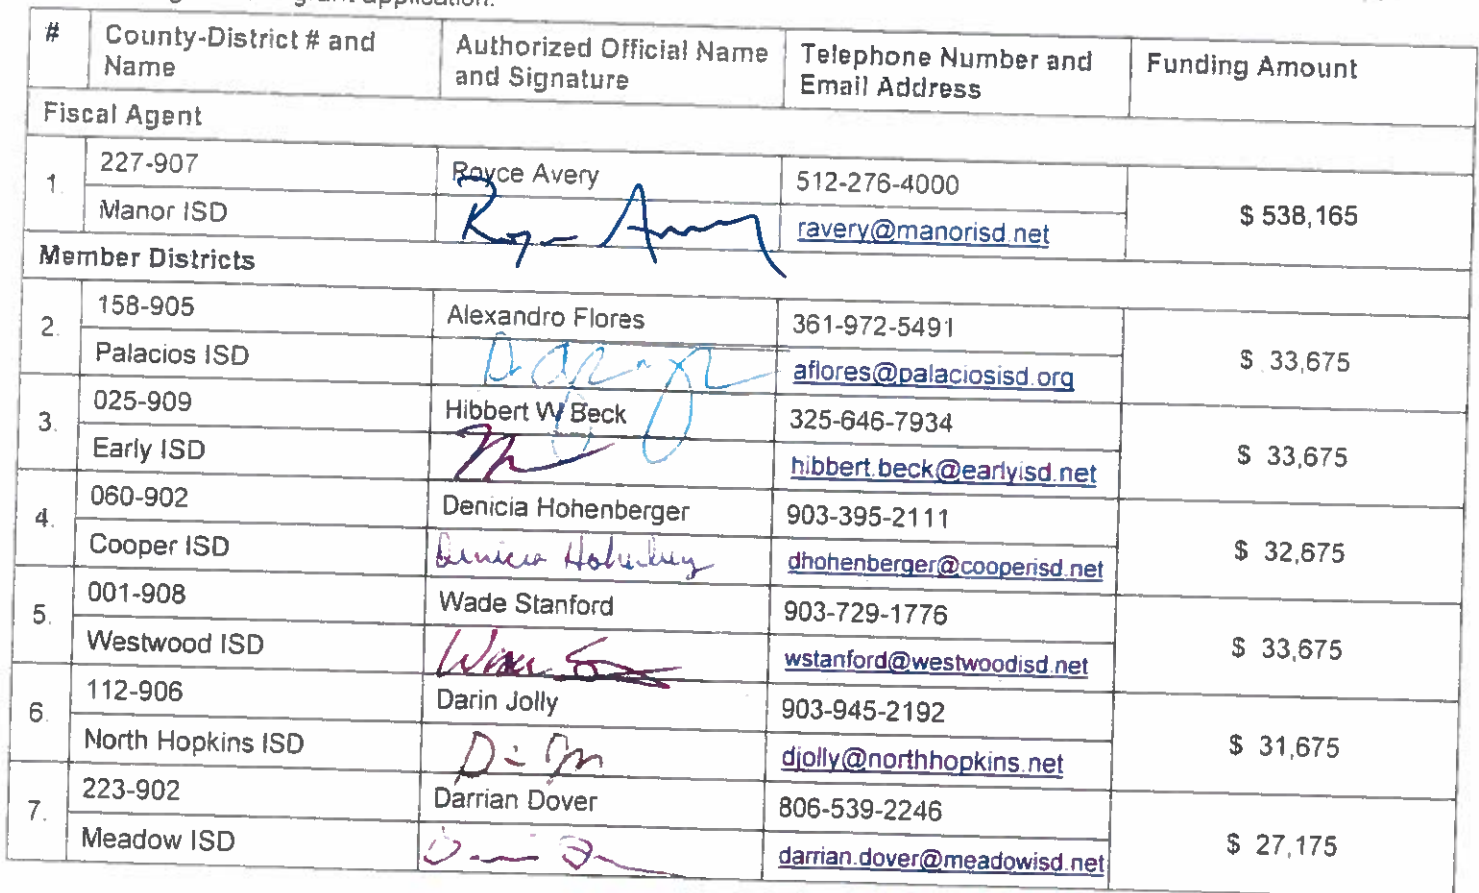 grant application.
# County-District # and Name Authorized Official Name and Signature Telephone Number and Email Address Funding Amount
Fiscal Agent
1. 227-907 Royce Avery 512-276-4000 $ 538,165
Manor ISD ravery@manorisd.net
Member Districts
2. 158-905 Alexandro Flores 361-972-5491 $ 33,675
Palacios ISD aflores@palaciosisd.org
3. 025-909 Hibbert W Beck 325-646-7934 $ 33,675
Early ISD hibbert.beck@earlyisd.net
4. 060-902 Denicia Hohenberger 903-395-2111 $ 32,675
Cooper ISD Denicia Hohenberger dhohenberger@cooperisd.net
5. 001-908 Wade Stanford 903-729-1776 $ 33,675
Westwood ISD wstanford@westwoodisd.net
6. 112-906 Darin Jolly 903-945-2192 $ 31,675
North Hopkins ISD djolly@northhopkins.net
7. 223-902 Darrian Dover 806-539-2246 $ 27,175
Meadow ISD darrian.dover@meadowisd.net